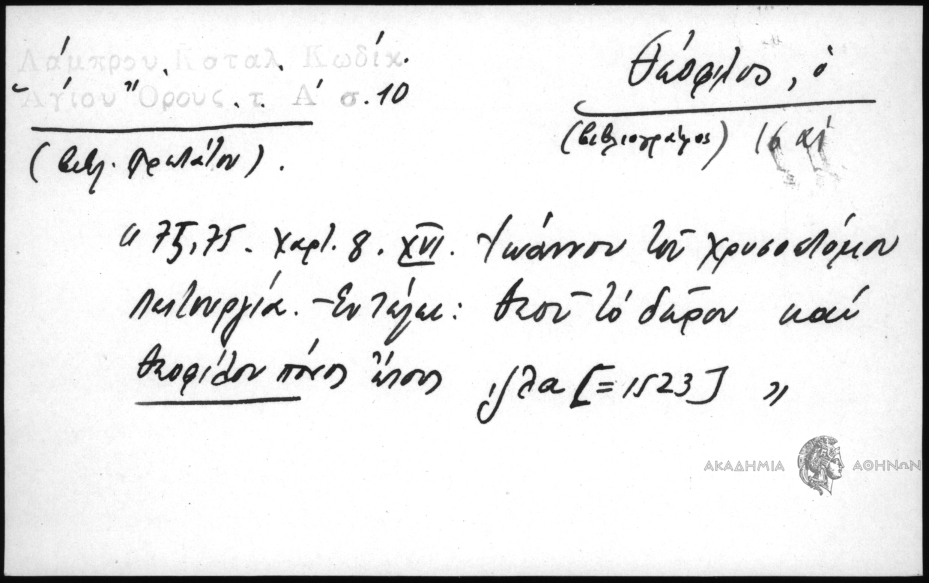 Λάμπρου Καταλ. Κωδίκ.
Ἁγίου Ὄρους τ. Α΄ σ. 10
(βιβλ. Πρωτάτου).
Θεόφιλος, ὁ
(βιβλιογράφος) 16 αἰ
" 75,75. χαρτ. 8. XVI. Ἰωάννου τοῦ Χρυσοστόμου
Λειτουργία. - Ἐν τέλει: Θεοῦ τὸ δῶρον καὶ
Θεοφίλου πόνος ἔτους ͵ζλα [=1523] "
ΑΚΑΔΗΜΙΑ ΑΘΗΝΩΝ